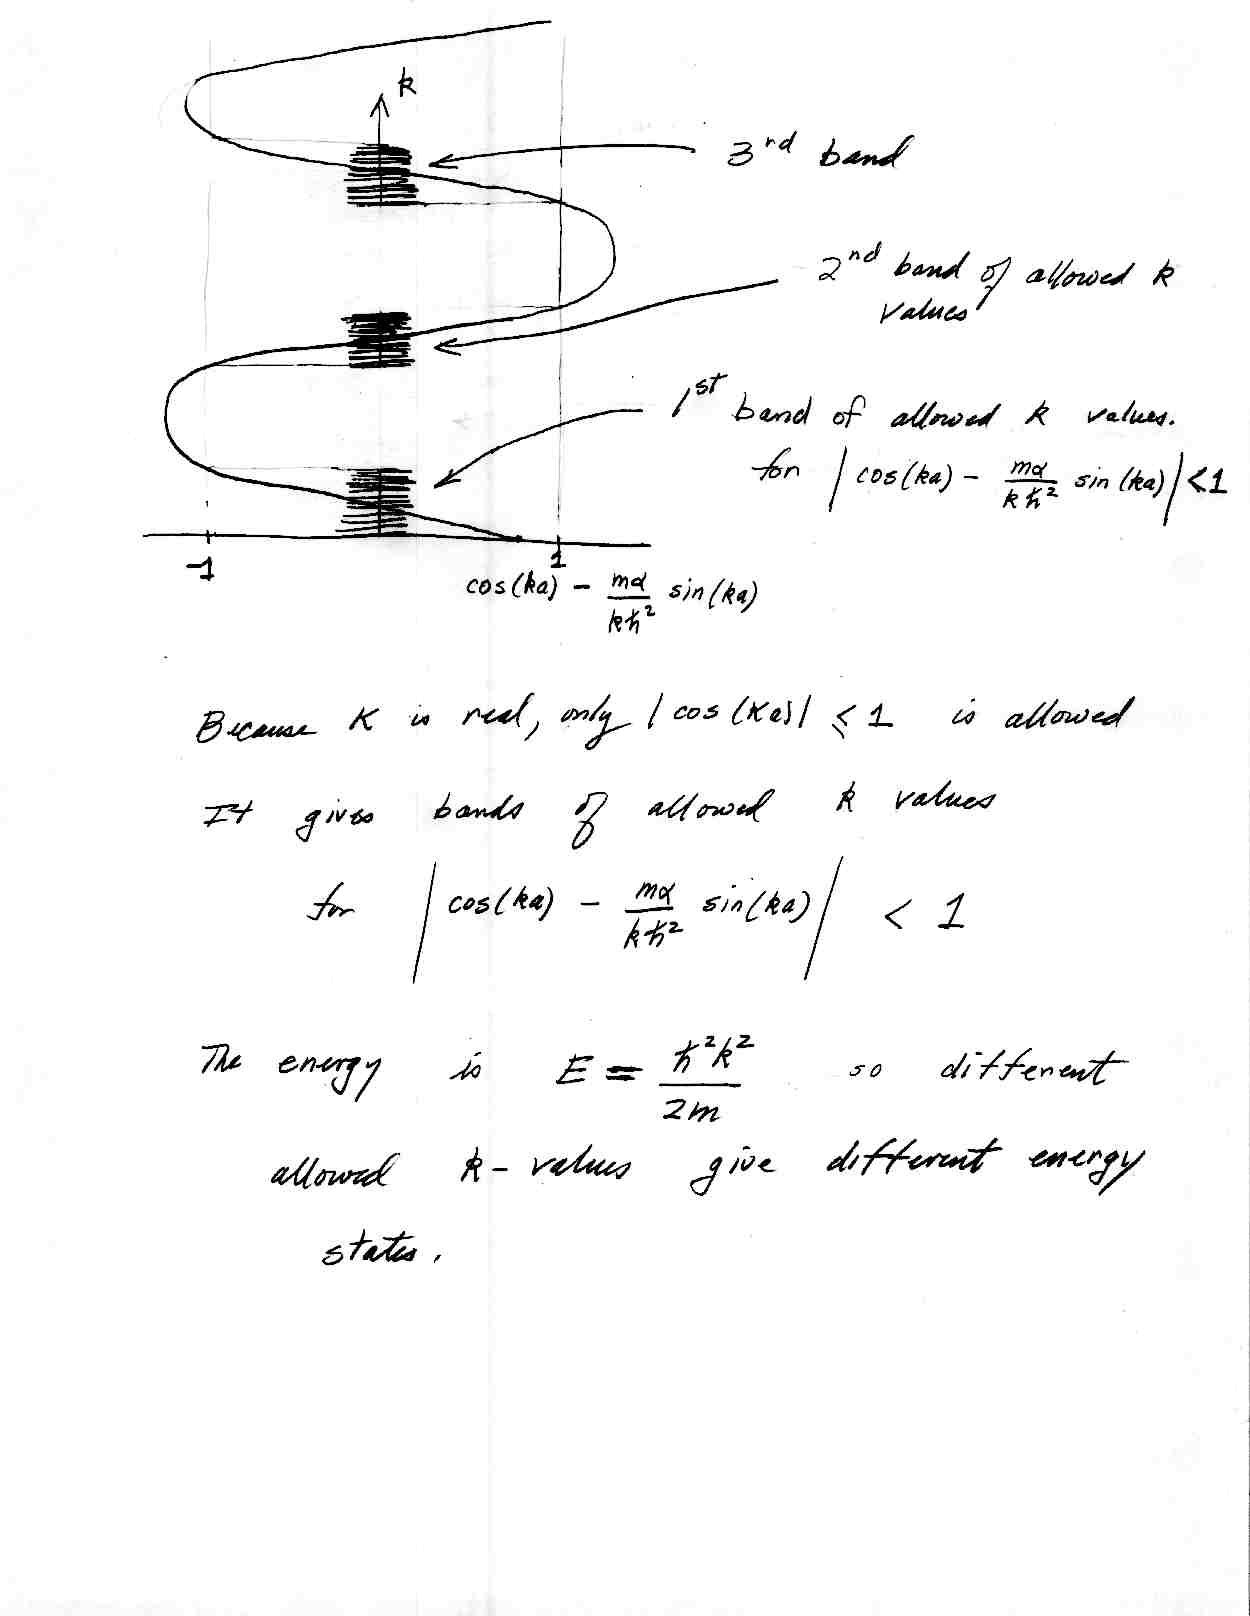 k
3rd band
2nd band of allowed k
values
1st band of allowed k values.
for | cos(ka) - mα/kħ² sin(ka) | < 1
-1 1
cos(ka) - mα/kħ² sin(ka)
Because K is real, only |cos(Ka)| ≤ 1 is allowed
It gives bands of allowed k values
for | cos(ka) - mα/kħ² sin(ka) | < 1
The energy is E = ħ²k²/2m so different
allowed k-values give different energy
states.